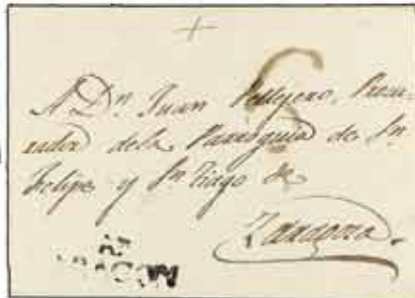 A Dn. Juan Pellejero, Procu-
rador dela Parroquia de Sn.
Felipe y Sn. Tiago de
Zaragoza.
ARAGON